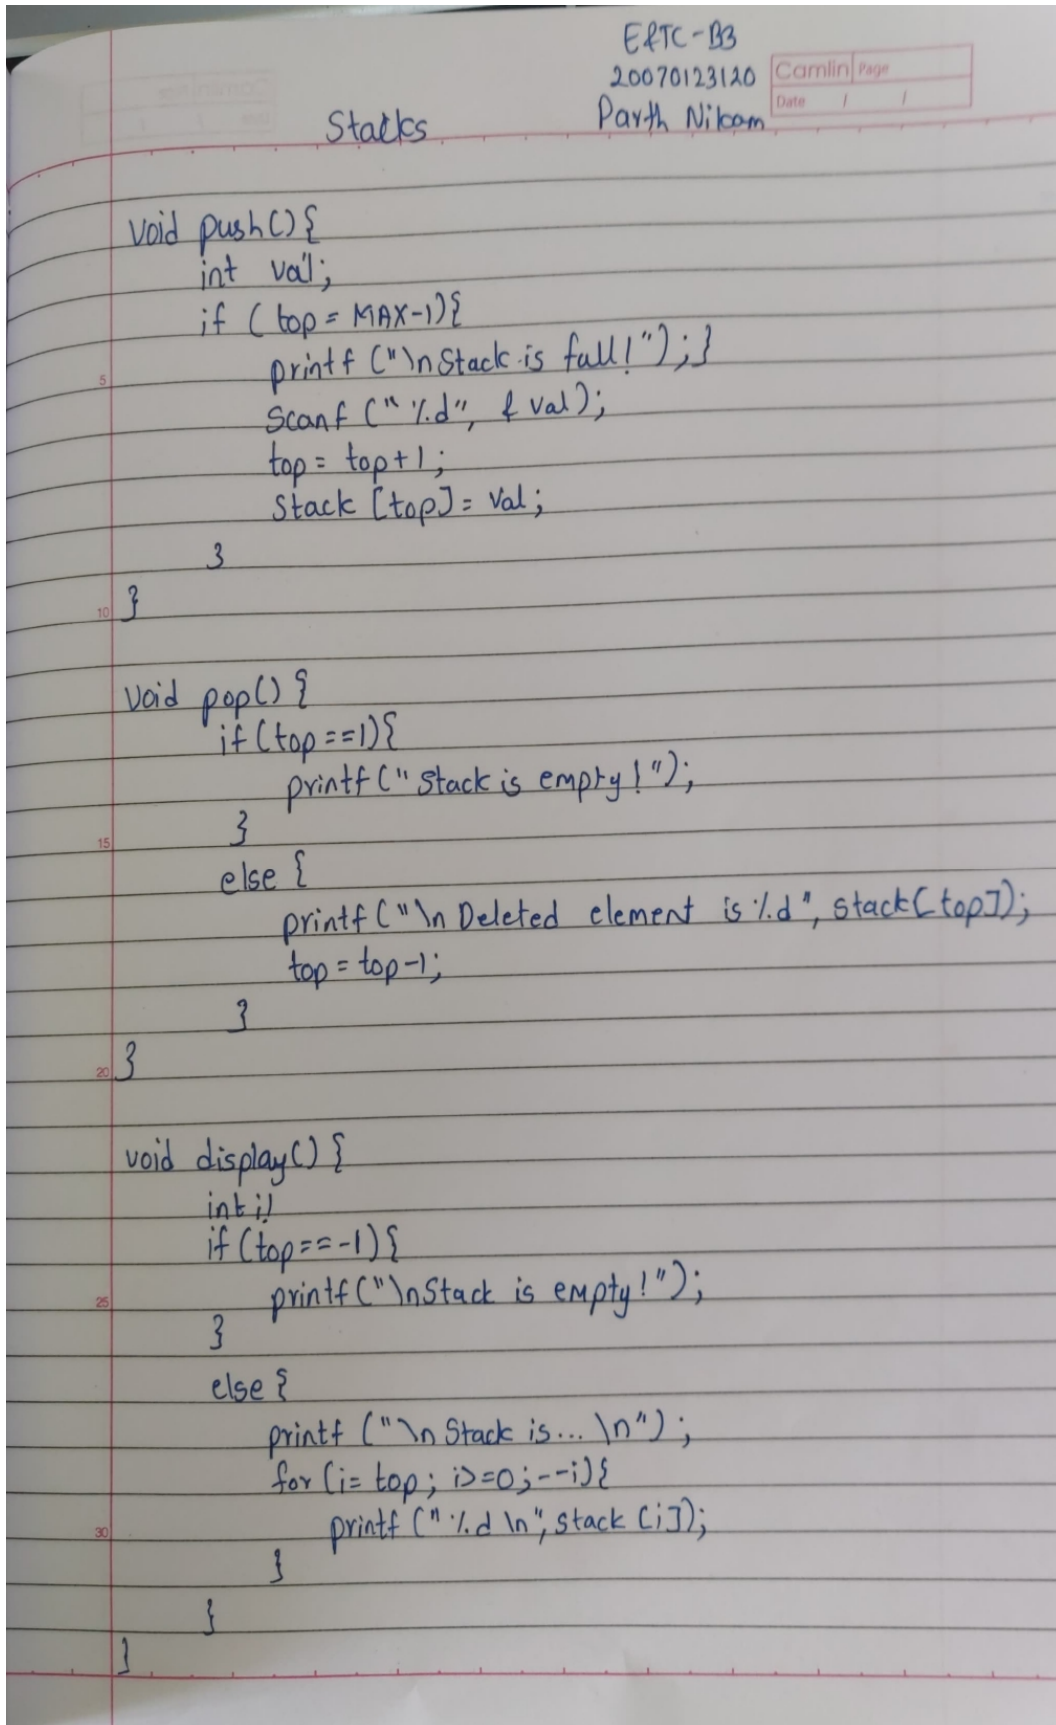 E&TC-B3
20070123120
Camlin Page
Date / /
Parth Nikam
Stacks
void push(){
int val;
if (top = MAX-1){
printf ("\nStack is full!");}
Scanf ("%d", &val);
top = top+1;
Stack [top] = val;
}
}
5
10
void pop() {
if(top==1){
printf("Stack is empty!");
}
15
else {
printf("\n Deleted element is %d", stack[top]);
top = top-1;
}
20 }
void display() {
int i;
if(top==-1){
25 printf("\nStack is empty!");
}
else {
printf ("\n Stack is... \n");
for (i= top; i>=0;--i){
30 printf ("%d \n", stack [i]);
}
}
}